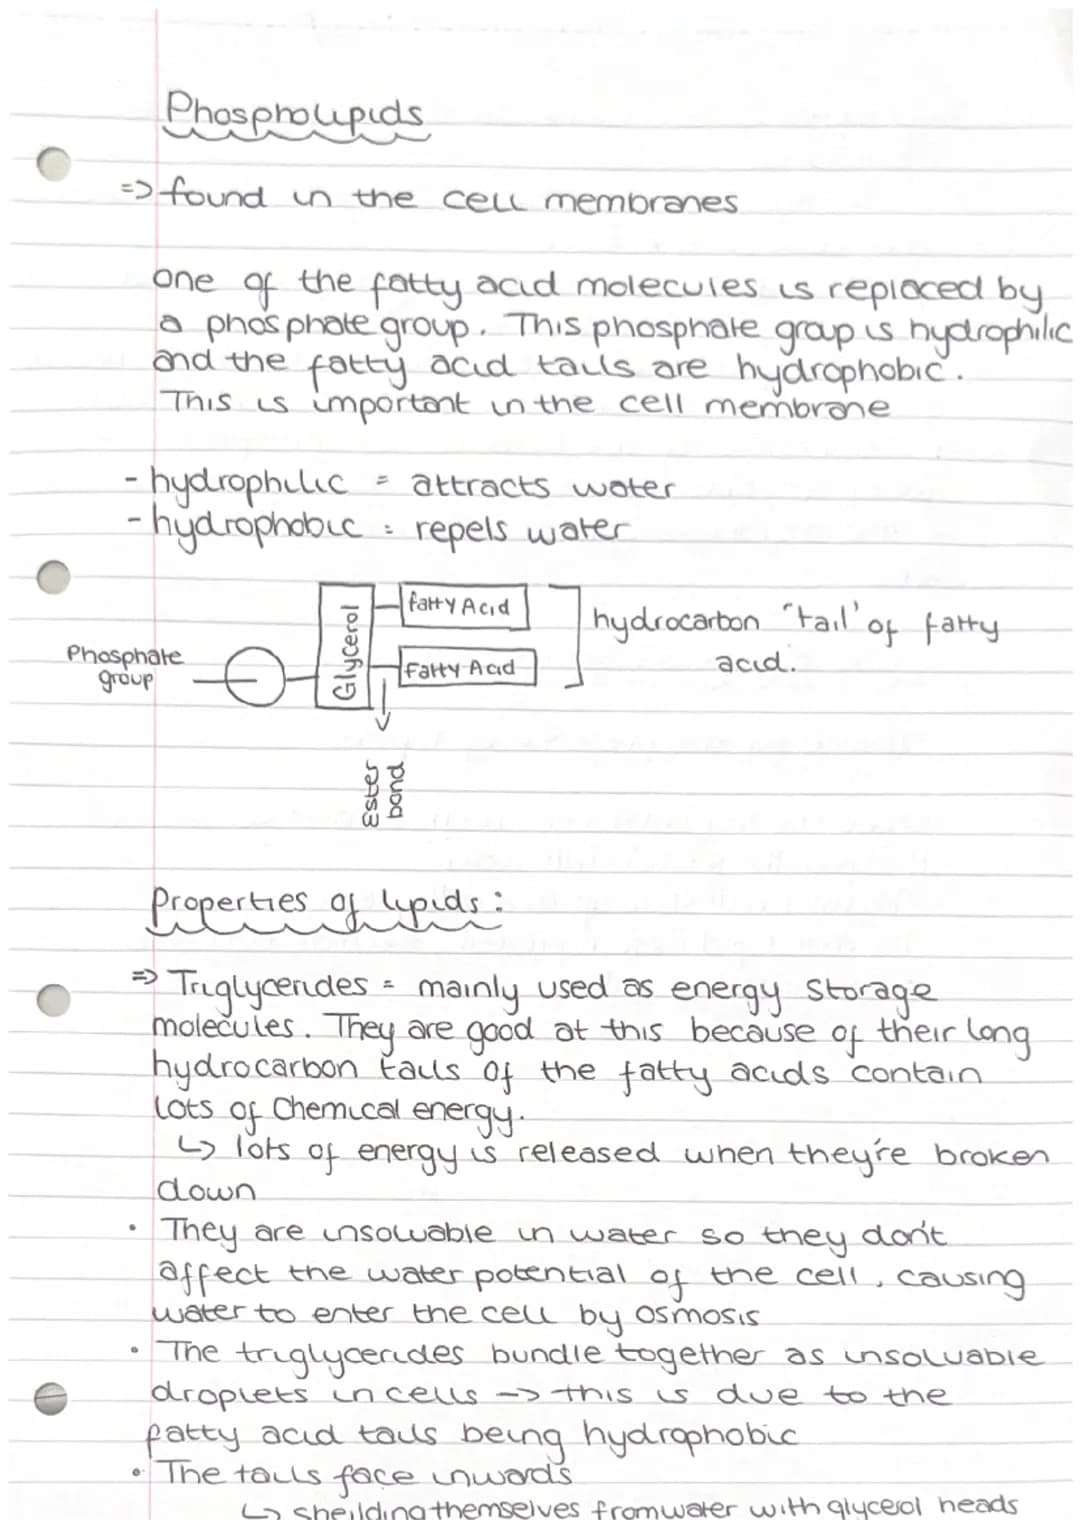 Phospholipids
=> found in the cell membranes
one of the fatty acid molecules is replaced by
a phosphate group. This phosphate group is hydrophilic
and the fatty acid tails are hydrophobic.
This is important in the cell membrane
- hydrophilic = attracts water
- hydrophobic = repels water
Phosphate
group
Glycerol
fatty Acid
Fatty Acid
hydrocarbon "tail" of fatty
acid.
Ester
bond
Properties of lipids:
=> Triglycerides = mainly used as energy storage
molecules. They are good at this because of their long
hydrocarbon tails of the fatty acids contain
lots of chemical energy.
↳ lots of energy is released when they're broken
down
• They are insoluable in water so they don't
affect the water potential of the cell, causing
water to enter the cell by osmosis
• The triglycerides bundle together as insoluable
droplets in cells -> this is due to the
fatty acid tails being hydrophobic
• The tails face inwards
↳ sheilding themselves from water with glycerol heads